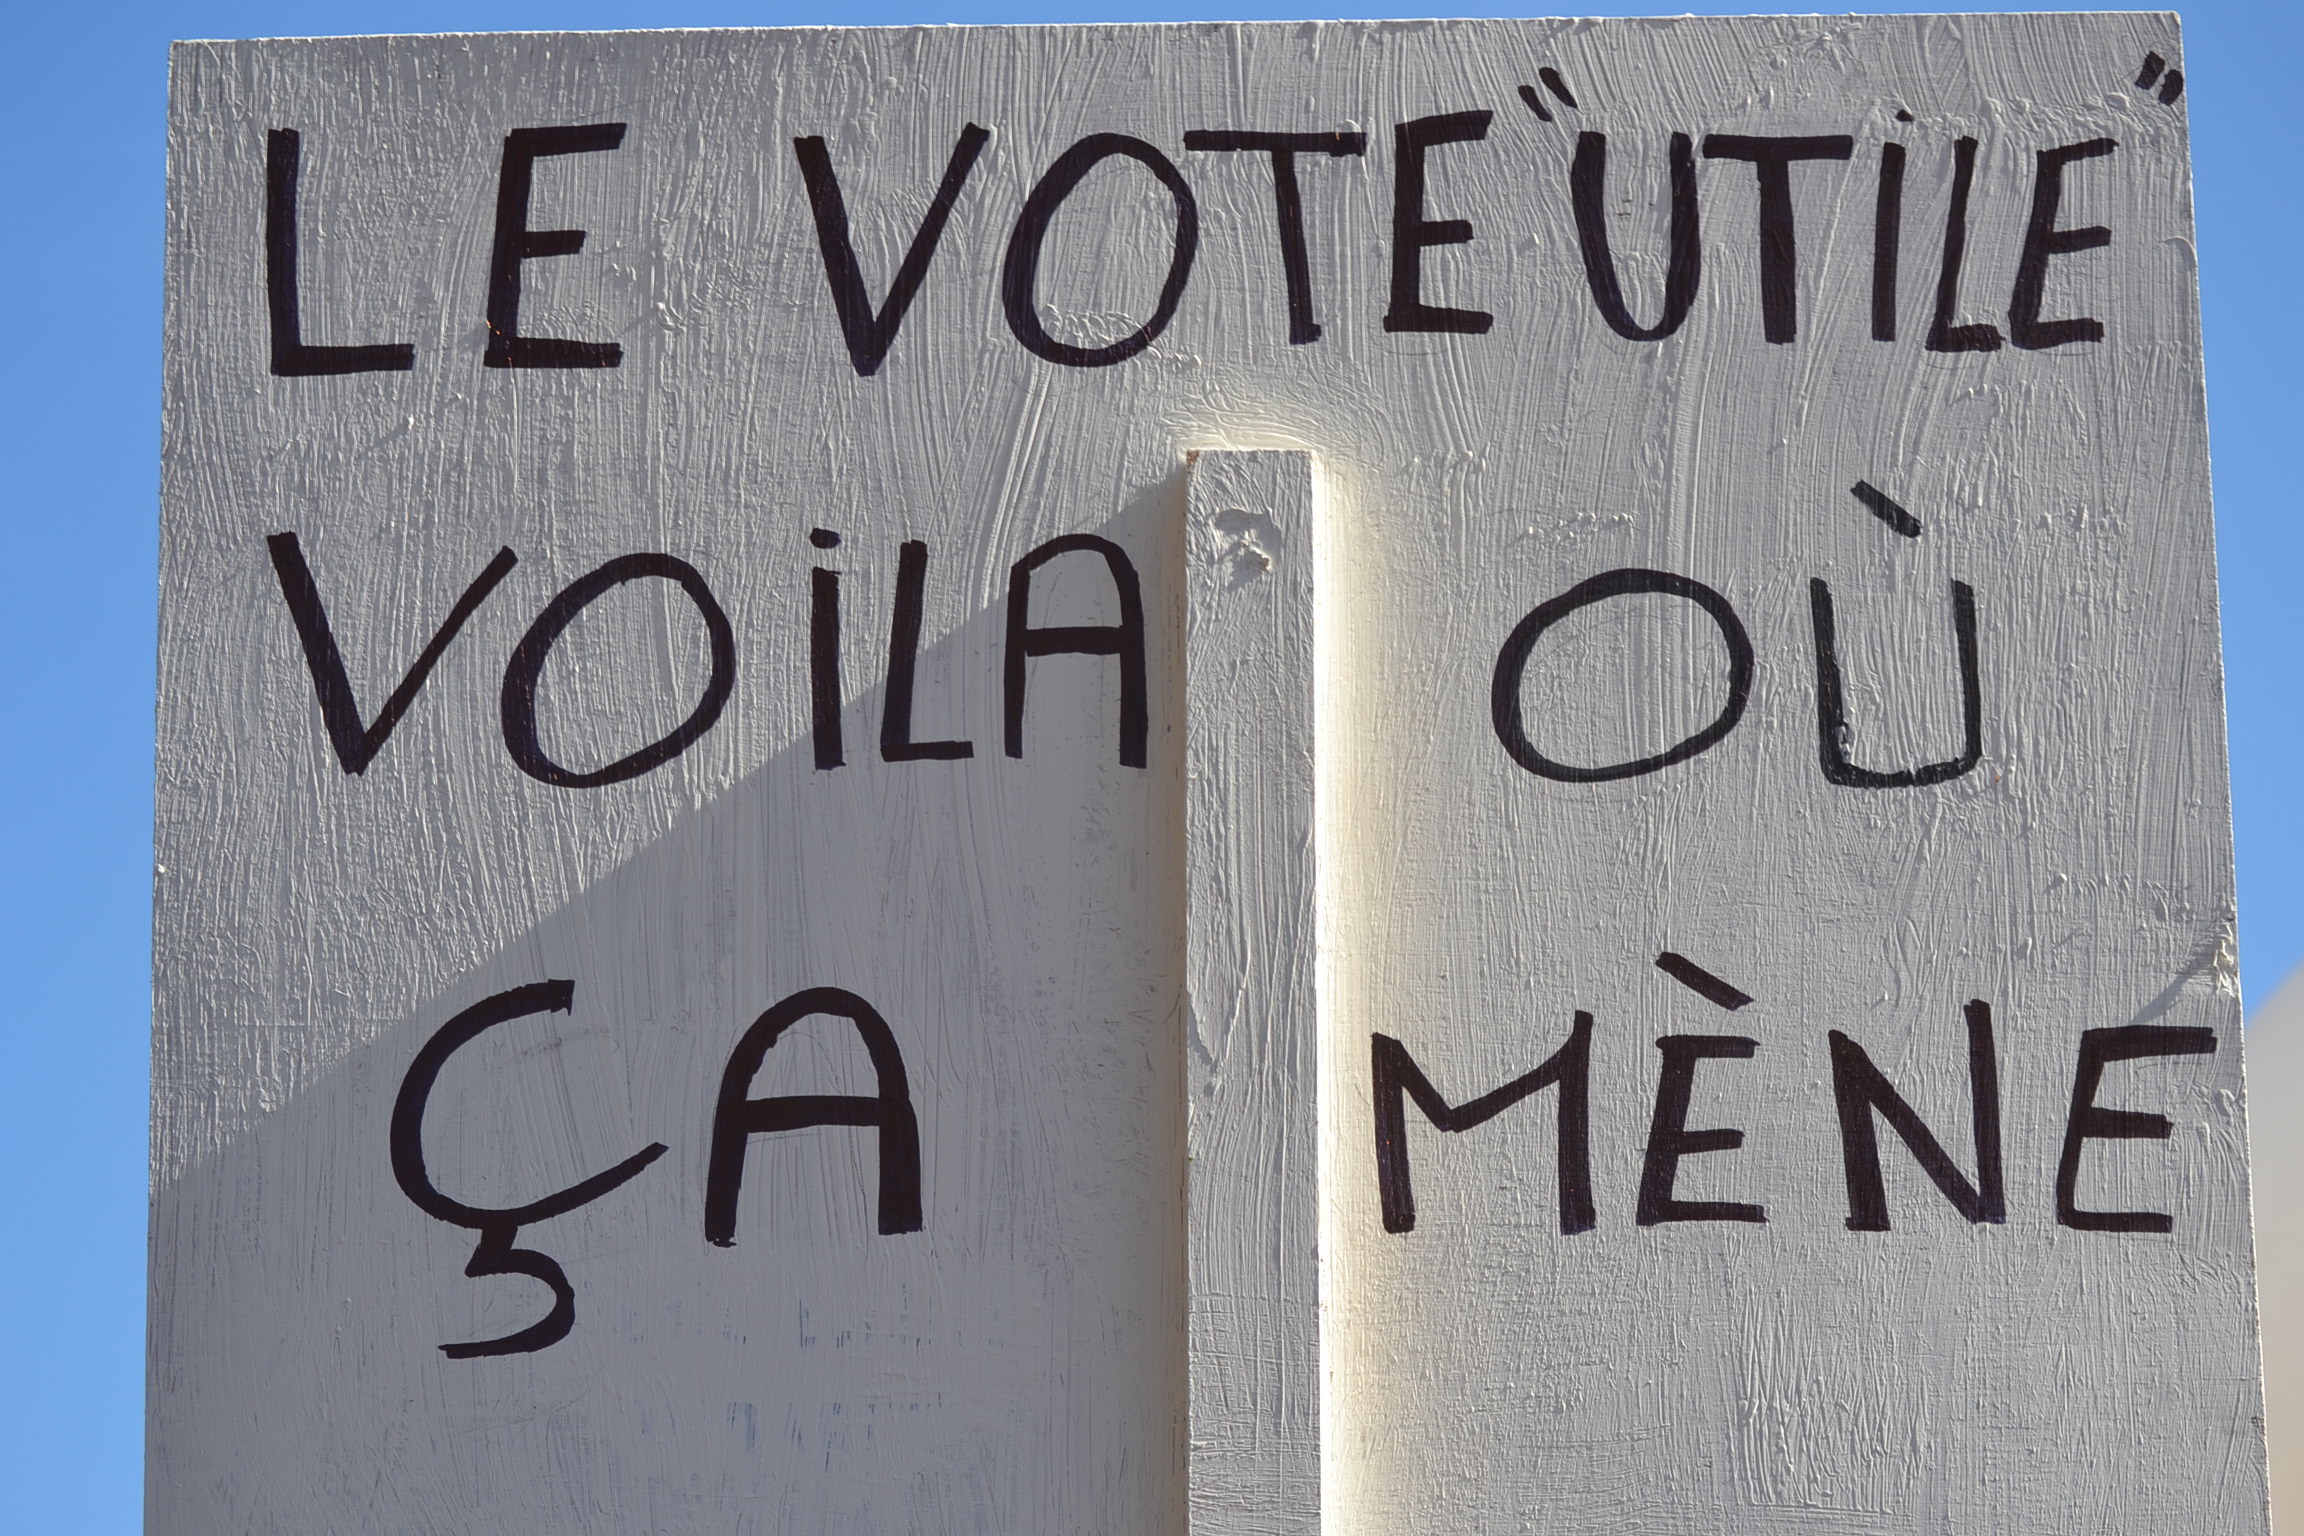 LE VOTE "UTiLE"
VOiLA OÙ
ÇA MÈNE